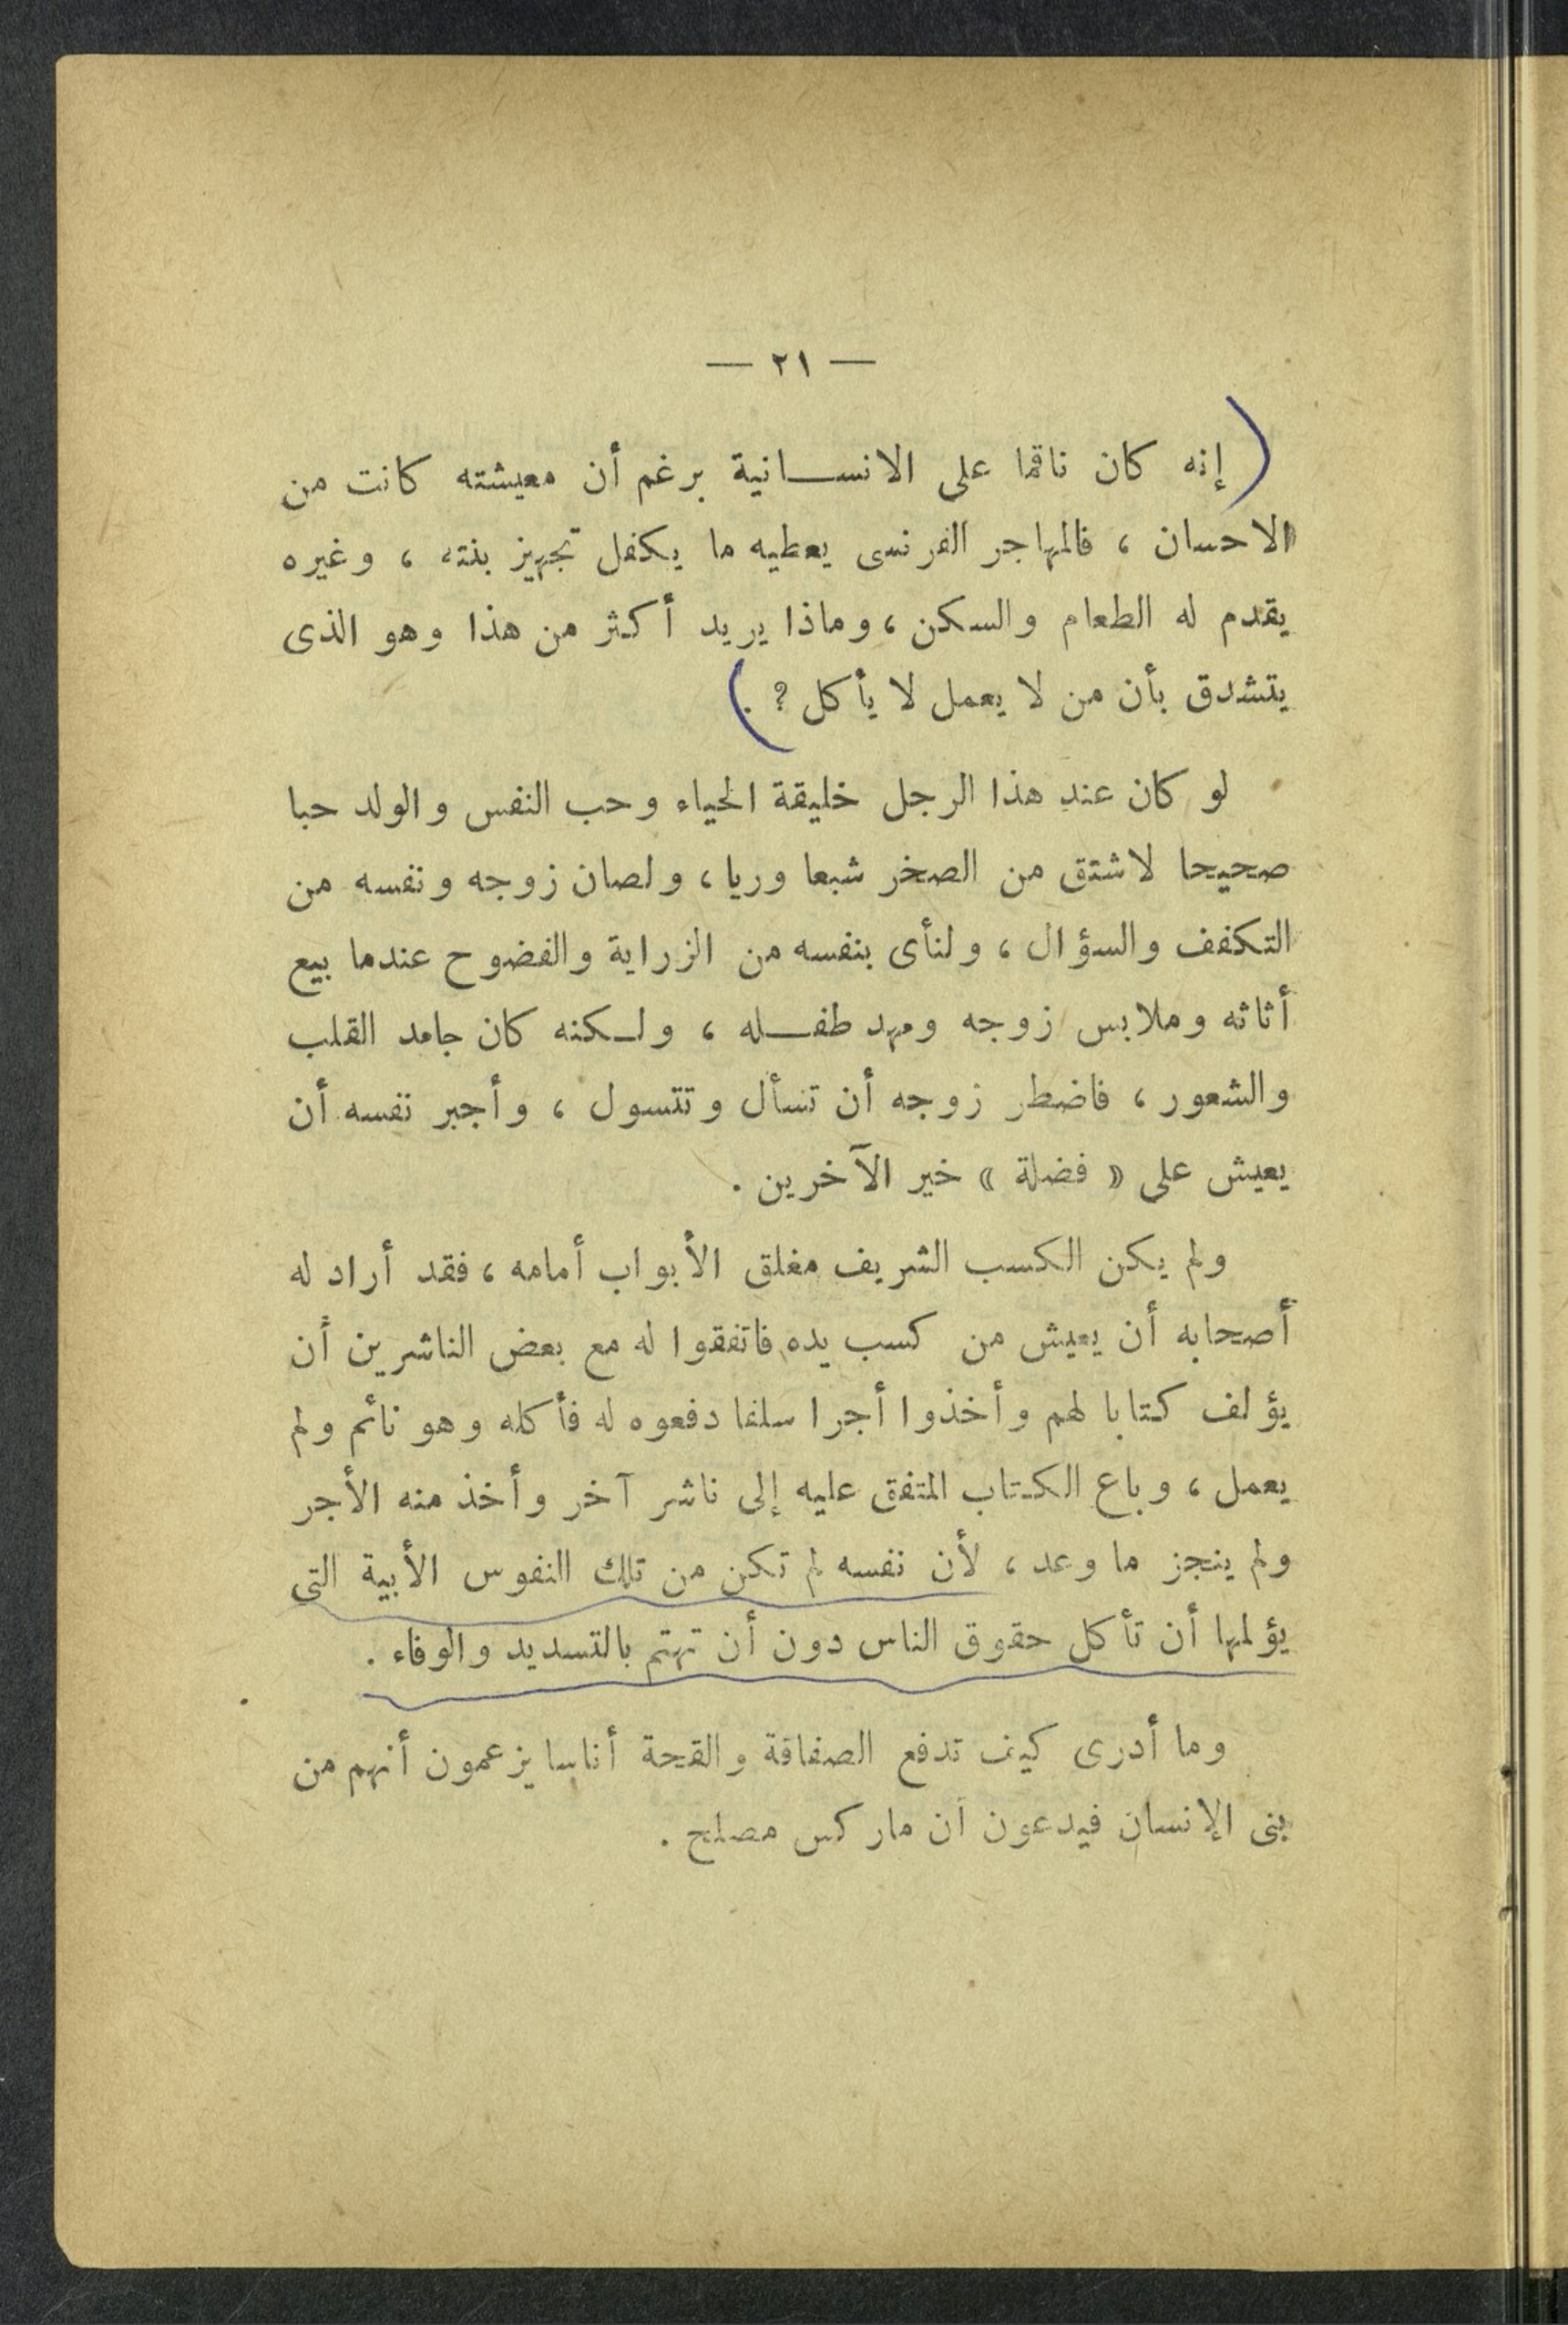 — ٢١ —
إنه كان ناقما على الانسانية برغم أن معيشته كانت من
الاحسان ، فالمهاجر الفرنسى يعطيه ما يكفل تجهيز بنته ، وغيره
يقدم له الطعام والسكن ، وماذا يريد أكثر من هذا وهو الذى
يتشدق بأن من لا يعمل لا يأكل ؟ .
لو كان عند هذا الرجل خليقة الحياء وحب النفس والولد حبا
صحيحا لاشتق من الصخر شبعا وريا ، ولصان زوجه ونفسه من
التكفف والسؤال ، ولنأى بنفسه من الزراية والفضوح عندما بيع
أثاثه وملابس زوجه ومهد طفله ، ولكنه كان جامد القلب
والشعور ، فاضطر زوجه أن تسأل وتتسول ، وأجبر نفسه أن
يعيش على « فضلة » خير الآخرين .
ولم يكن الكسب الشريف مغلق الأبواب أمامه ، فقد أراد له
أصحابه أن يعيش من كسب يده فاتفقوا له مع بعض الناشرين أن
يؤلف كتابا لهم وأخذوا أجرا سلفا دفعوه له فأكله وهو نائم ولم
يعمل ، وباع الكتاب المتفق عليه إلى ناشر آخر وأخذ منه الأجر
ولم ينجز ما وعد ، لأن نفسه لم تكن من تلك النفوس الأبية التى
يؤلمها أن تأكل حقوق الناس دون أن تهتم بالتسديد والوفاء .
وما أدرى كيف تدفع الصفاقة والقحة أناسا يزعمون أنهم من
بنى الإنسان فيدعون أن ماركس مصلح .